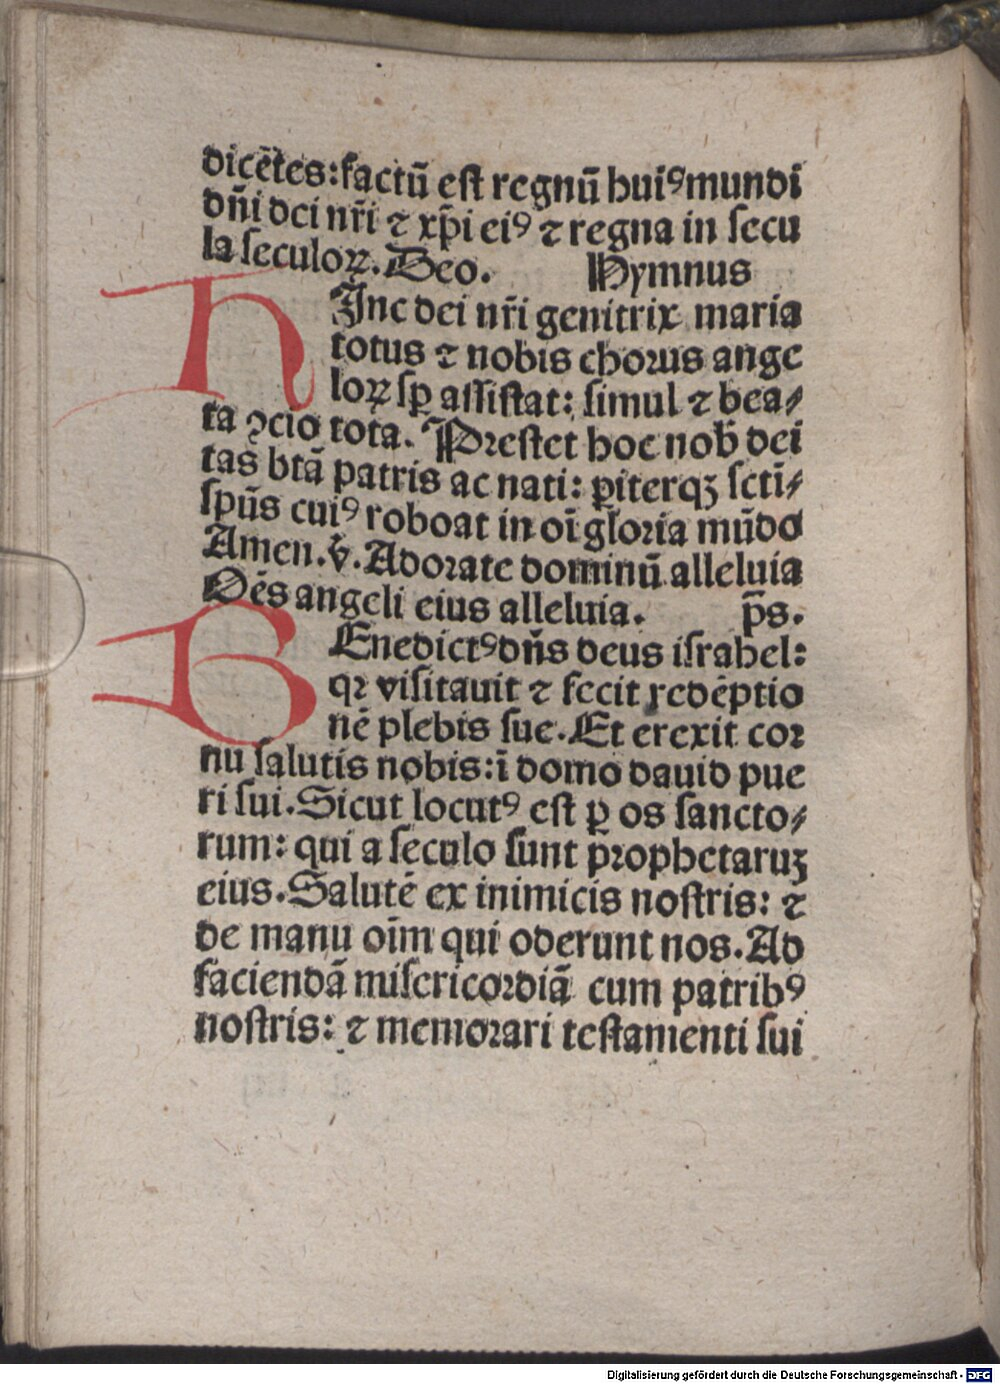 dicẽtes: factũ est regnũ huiꝰ mundi
dñi dei nr̃i ⁊ xp̃i eiꝰ ⁊ regna in secu
la seculoꝝ. Deo. Hymnus
HInc dei nr̃i genitrix maria
totus ⁊ nobis chorus ange
loꝝ sꝑ assistat: simul ⁊ bea⸗
ta ꝯcio tota. Prestet hoc nob̃ dei
tas btã patris ac nati: ꝑiterqꝫ scti̇̃⸗
spũs cuiꝰ roboat in oĩ gloria mũdo
Amen. v̇. Adorate dominũ alleluia
Oẽs angeli eius alleluia. p̃s.
BEnedictꝰ dñs deus israhel:
qꝛ visitauit ⁊ fecit redẽptio
nẽ plebis sue. Et erexit cor
nu salutis nobis: ĩ domo dauid pue
ri sui. Sicut locutꝰ est ꝑ os sancto⸗
rum: qui a seculo sunt prophetaruꝫ
eius. Salutẽ ex inimicis nostris: ⁊
de manu oĩm qui oderunt nos. Ad
faciendã misericordiã cum patribꝰ
nostris: ⁊ memorari testamenti sui
Digitalisierung gefördert durch die Deutsche Forschungsgemeinschaft - DFG